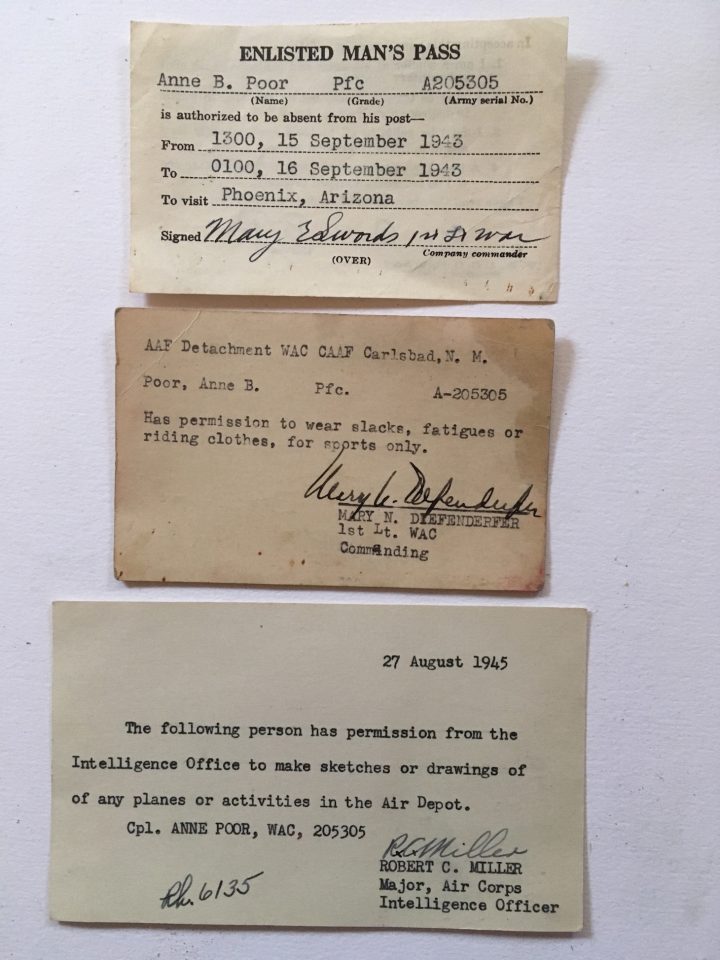 ENLISTED MAN'S PASS
Anne B. Poor Pfc A205305
(Name) (Grade) (Army serial No.)
is authorized to be absent from his post—
From 1300, 15 September 1943
To 0100, 16 September 1943
To visit Phoenix, Arizona
Signed Mary E Swords 1st Lt WAC
Company commander
(OVER)
AAF Detachment WAC CAAF Carlsbad, N. M.
Poor, Anne B. Pfc. A-205305
Has permission to wear slacks, fatigues or
riding clothes, for sports only.
Mary N. Diefenderfer
MARY N. DIEFENDERFER
1st Lt. WAC
Commanding
27 August 1945
The following person has permission from the
Intelligence Office to make sketches or drawings of
of any planes or activities in the Air Depot.
Cpl. ANNE POOR, WAC, 205305
R C Miller
ROBERT C. MILLER
Major, Air Corps
Intelligence Officer
Ph. 6135